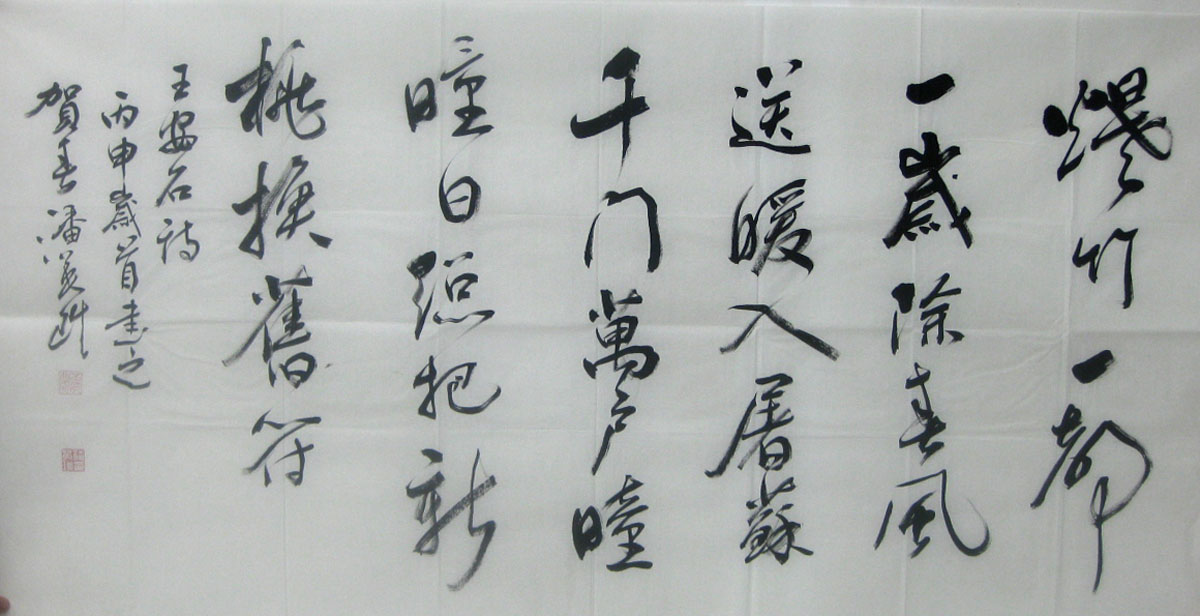 爆竹一聲
一歲除春風
送暖入屠蘇
千门萬户曈
曈日總把新
桃換舊符
王安石詩
丙申歲首書之
賀春潘